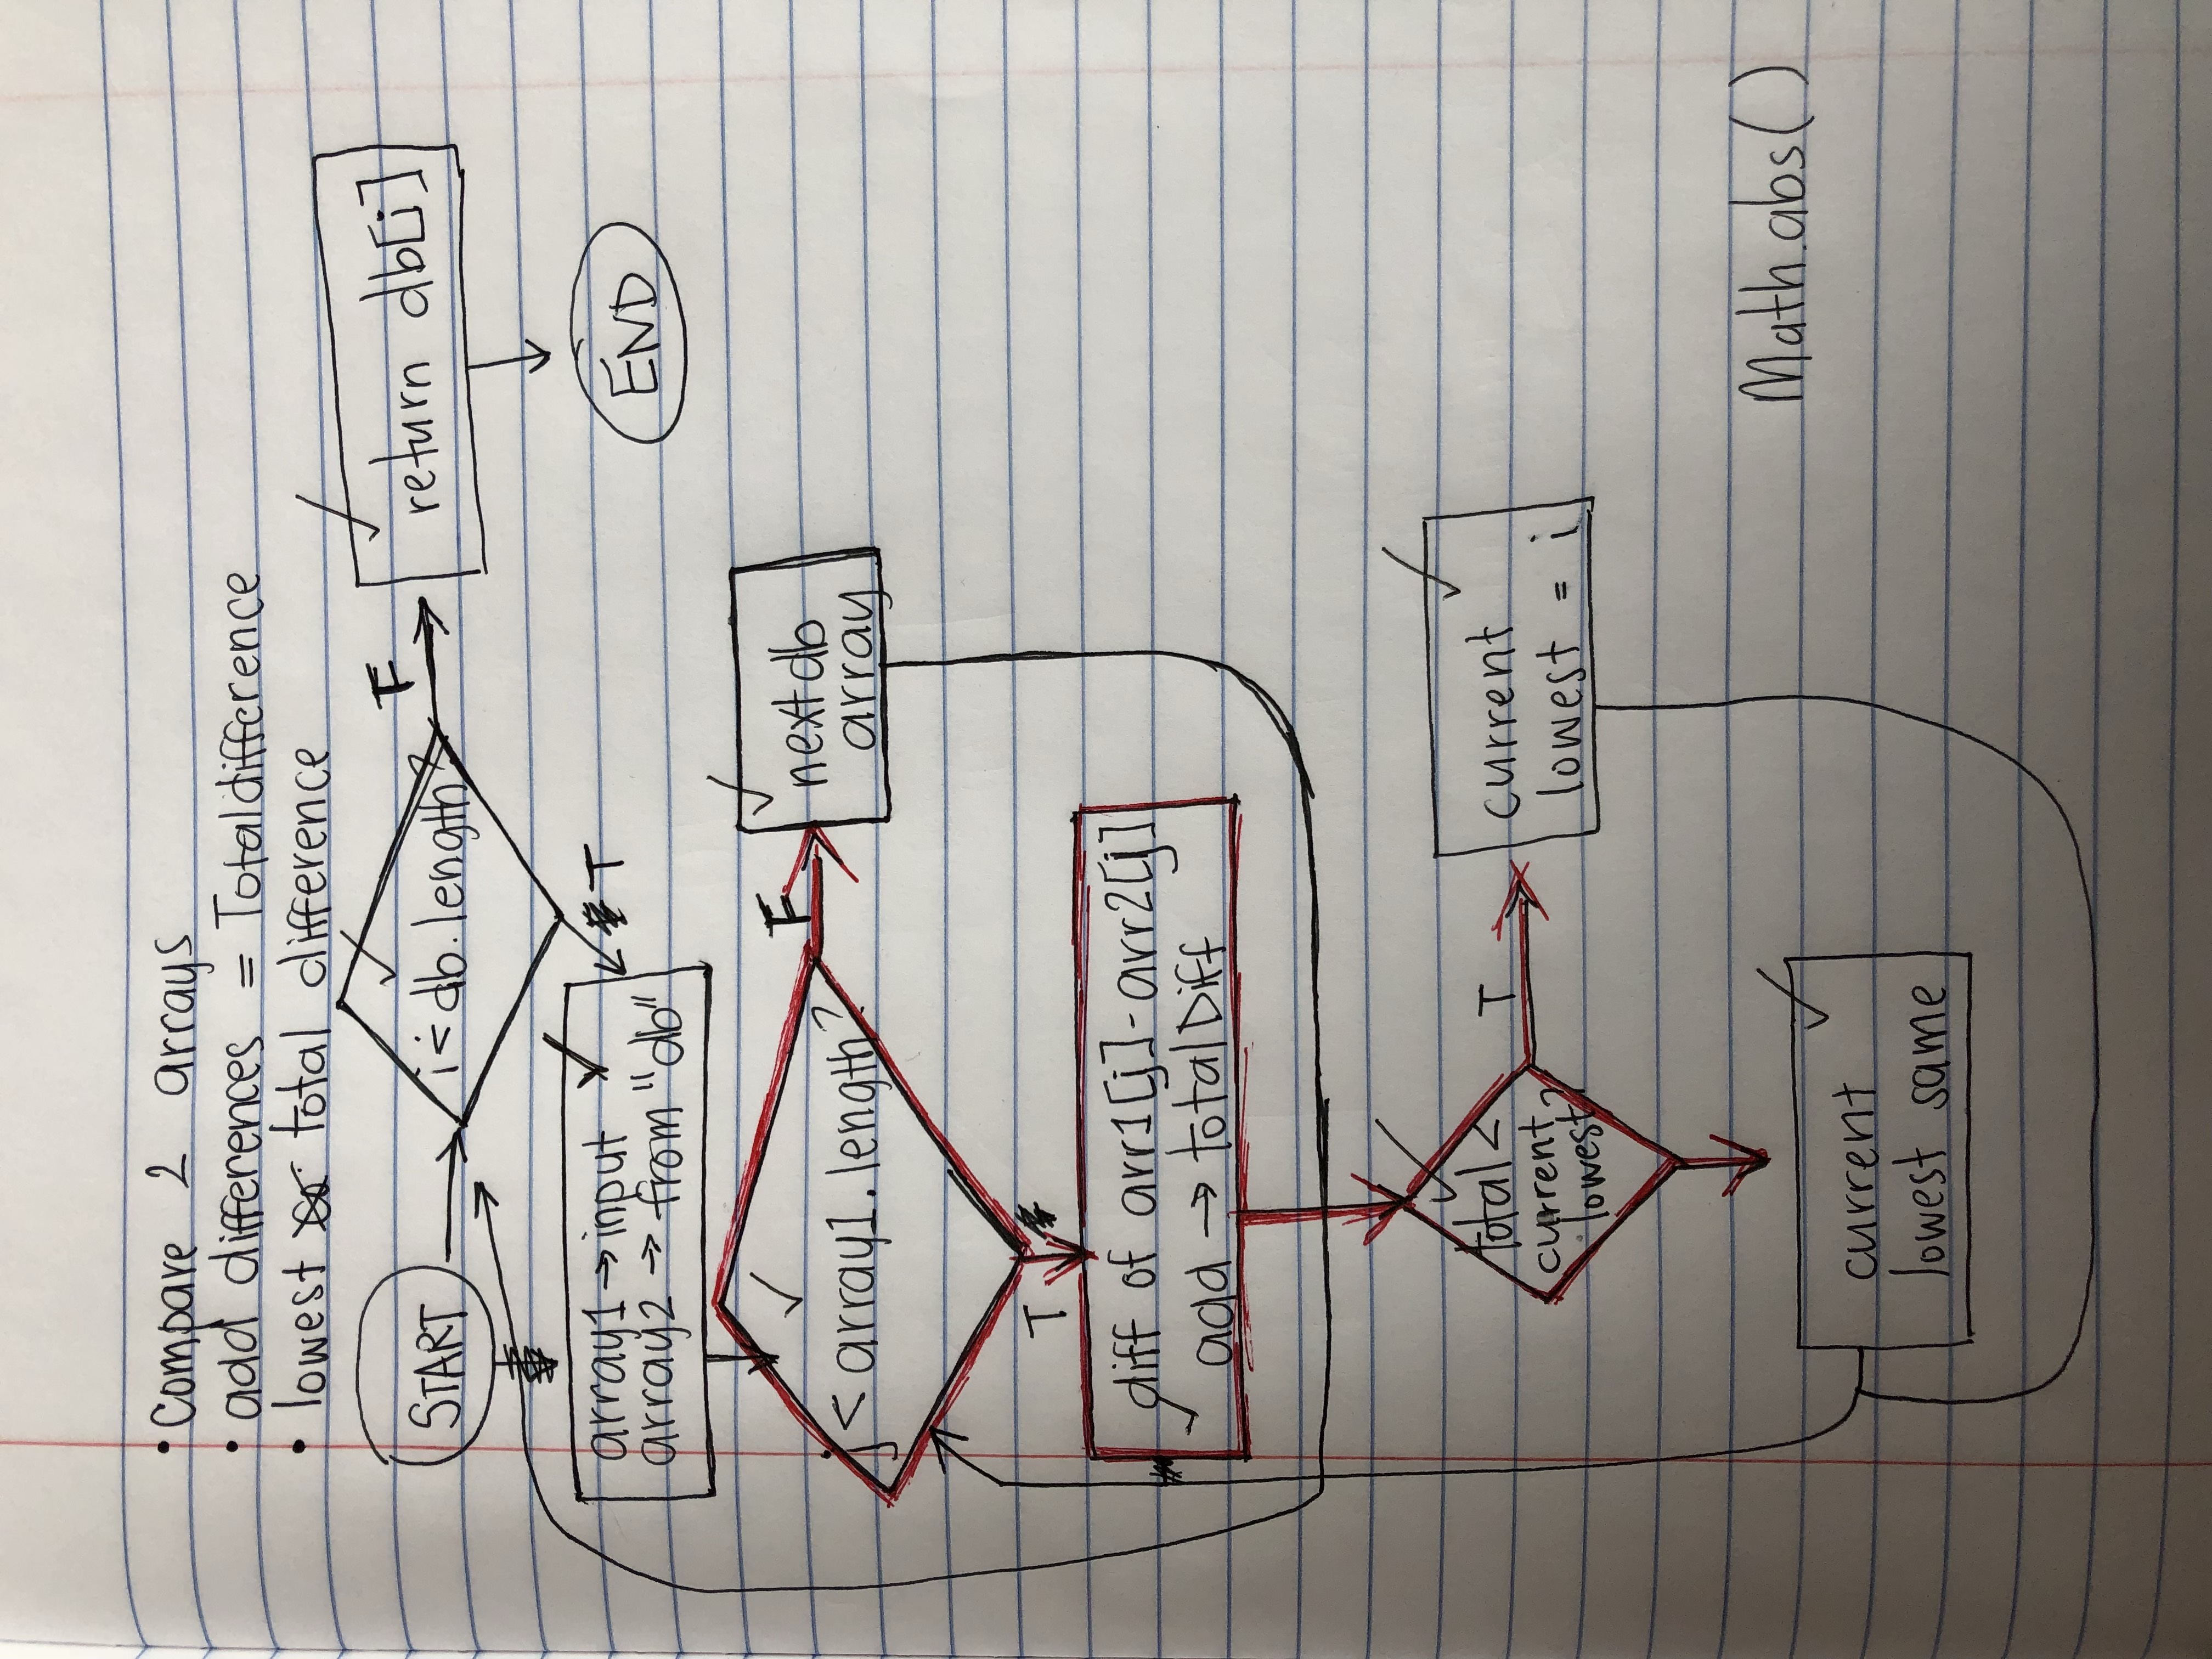 • compare 2 arrays
• add differences = Totaldifference
• lowest total difference
START
i < db.length?
F
return db[j]
T
END
array1 → input
array2 → from "db"
j < array1.length?
F
next db
array
T
diff of arr1[j] - arr2[j]
add → totalDiff
total <
current
lowest?
T
current
lowest = i
Math.abs()
current
lowest same